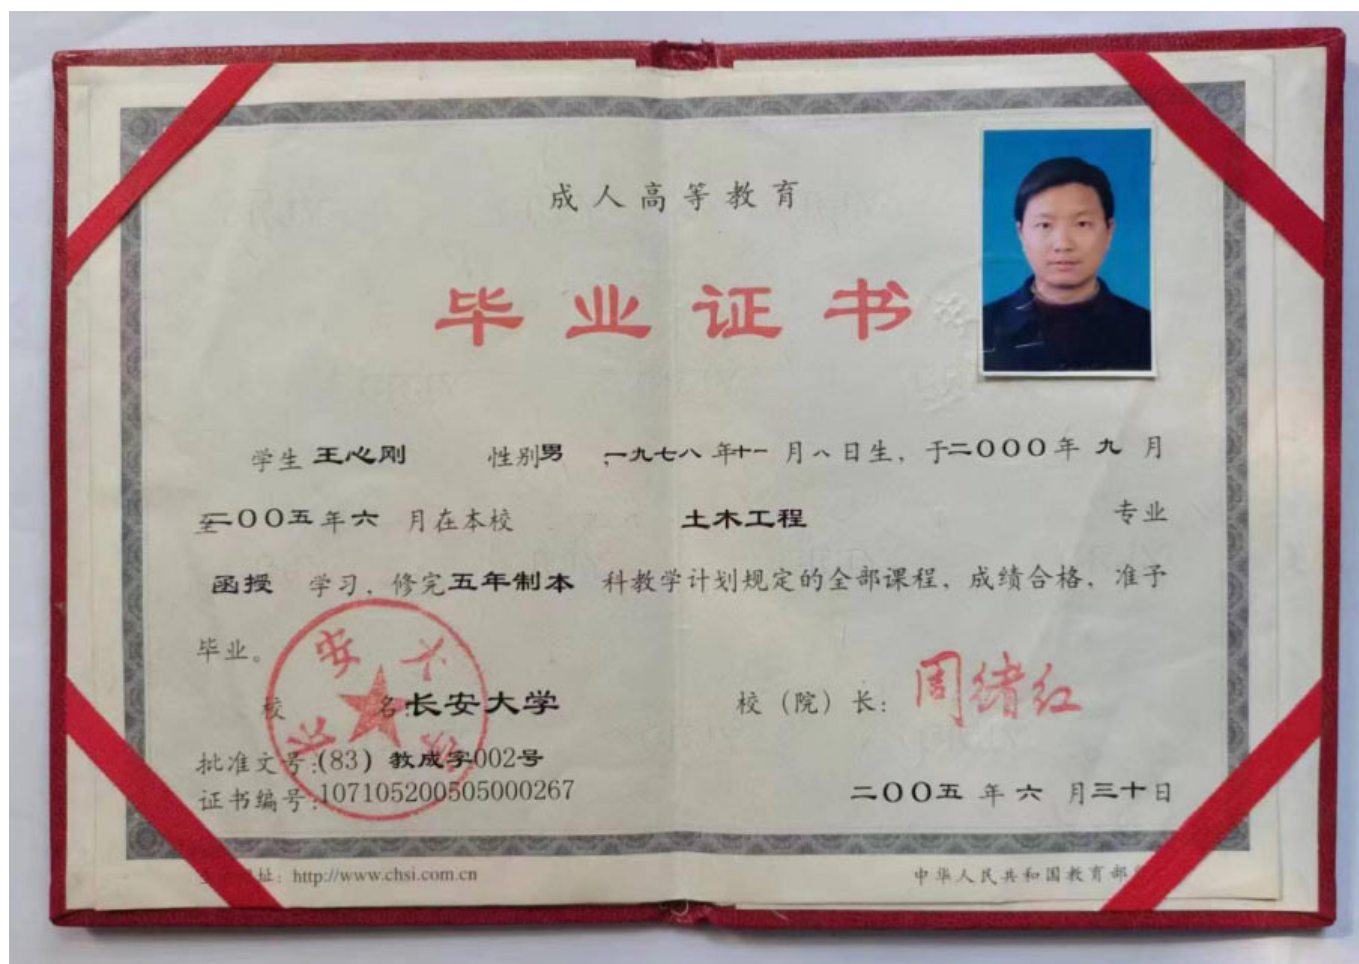 成人高等教育
毕业证书
学生 王心刚 性别男 ,一九七八年十一月八日生，于二〇〇〇年九月
至二〇〇五年六月在本校 土木工程 专业
函授 学习，修完五年制本科教学计划规定的全部课程，成绩合格，准予
毕业。
校 名:长安大学 校（院）长: 周绪红
批准文号:(83）教成字002号
证书编号:107105200505000267 二〇〇五年六月三十日
址: http://www.chsi.com.cn 中华人民共和国教育部
长安大学